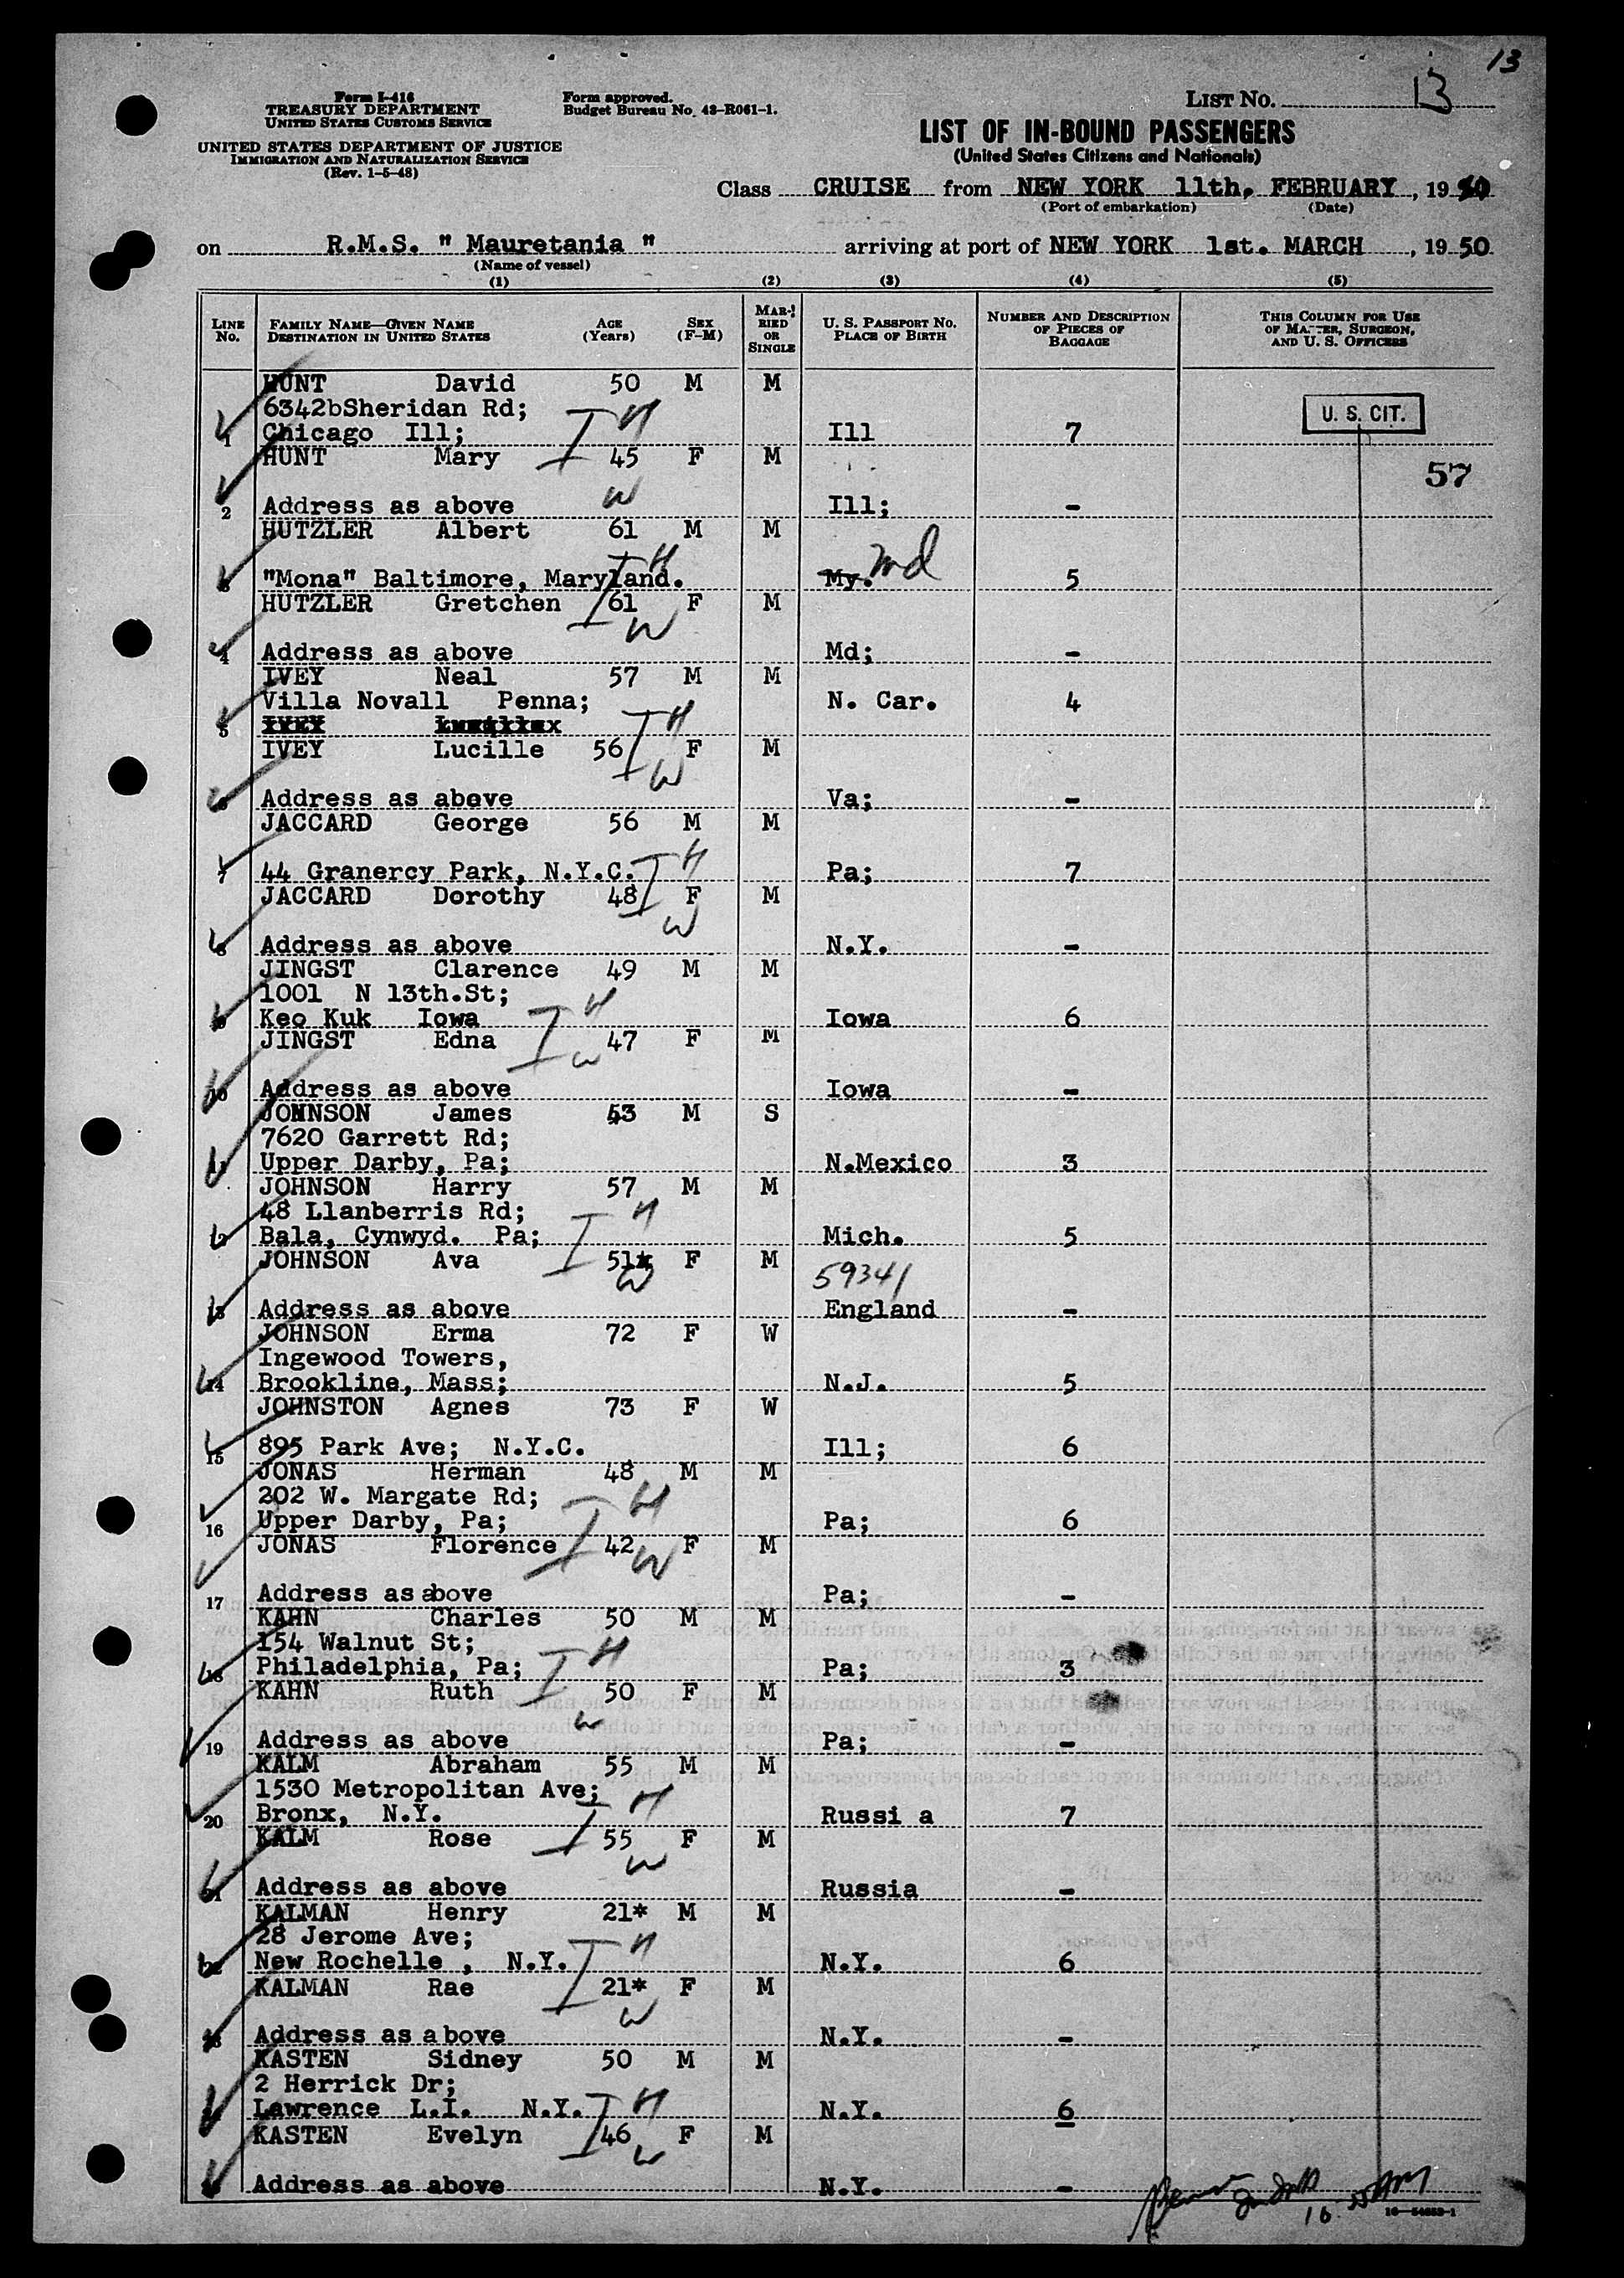 13
Form I-416
TREASURY DEPARTMENT
UNITED STATES CUSTOMS SERVICE
UNITED STATES DEPARTMENT OF JUSTICE
IMMIGRATION AND NATURALIZATION SERVICE
(Rev. 1-5-48)
Form approved.
Budget Bureau No. 43-R061-1.
LIST NO. 13
LIST OF IN-BOUND PASSENGERS
(United States Citizens and Nationals)
Class CRUISE from NEW YORK 11th, FEBRUARY, 1950
(Port of embarkation) (Date)
on R.M.S. " Mauretania " arriving at port of NEW YORK 1st. MARCH, 1950
(Name of vessel)
(1) (2) (3) (4) (5)
LINE No. FAMILY NAME—GIVEN NAME DESTINATION IN UNITED STATES AGE (Years) SEX (F-M) MARRIED OR SINGLE U. S. PASSPORT NO. PLACE OF BIRTH NUMBER AND DESCRIPTION OF PIECES OF BAGGAGE THIS COLUMN FOR USE OF MASTER, SURGEON, AND U. S. OFFICERS
HUNT David 50 M M
6342bSheridan Rd; I H U. S. CIT.
1 Chicago Ill; Ill 7
HUNT Mary 45 F M 57
W
2 Address as above Ill; -
HUTZLER Albert 61 M M
I H Md
3 "Mona" Baltimore, Maryland. My. 5
HUTZLER Gretchen 61 F M
W
4 Address as above Md; -
IVEY Neal 57 M M
Villa Novall Penna; N. Car. 4
5 IVEY I H
IVEY Lucille 56 F M
W
6 Address as above Va; -
JACCARD George 56 M M
7 44 Granercy Park, N.Y.C. I H Pa; 7
JACCARD Dorothy 48 F M
W
8 Address as above N.Y. -
JINGST Clarence 49 M M
1001 N 13th.St; H
9 Keo Kuk Iowa I Iowa 6
JINGST Edna 47 F M
W
10 Address as above Iowa -
JOHNSON James 53 M S
7620 Garrett Rd;
11 Upper Darby, Pa; N.Mexico 3
JOHNSON Harry 57 M M
48 Llanberris Rd; I H
12 Bala, Cynwyd. Pa; Mich. 5
JOHNSON Ava 51* F M
W 59341
13 Address as above England -
JOHNSON Erma 72 F W
Ingewood Towers,
14 Brookline, Mass; N.J. 5
JOHNSTON Agnes 73 F W
15 895 Park Ave; N.Y.C. Ill; 6
JONAS Herman 48 M M
202 W. Margate Rd; I H
16 Upper Darby, Pa; Pa; 6
JONAS Florence 42 F M
W
17 Address as above Pa; -
KAHN Charles 50 M M
154 Walnut St; I H
18 Philadelphia, Pa; Pa; 3
KAHN Ruth 50 F M
W
19 Address as above Pa; -
KALM Abraham 55 M M
1530 Metropolitan Ave;
20 Bronx, N.Y. I H Russi a 7
KALM Rose 55 F M
W
21 Address as above Russia -
KALMAN Henry 21* M M
28 Jerome Ave; H
22 New Rochelle , N.Y. I N.Y. 6
KALMAN Rae 21* F M
W
23 Address as a bove N.Y. -
KASTEN Sidney 50 M M
2 Herrick Dr;
24 Lawrence L.I. N.Y. I H N.Y. 6
KASTEN Evelyn 46 F M
W
25 Address as above N.Y. -